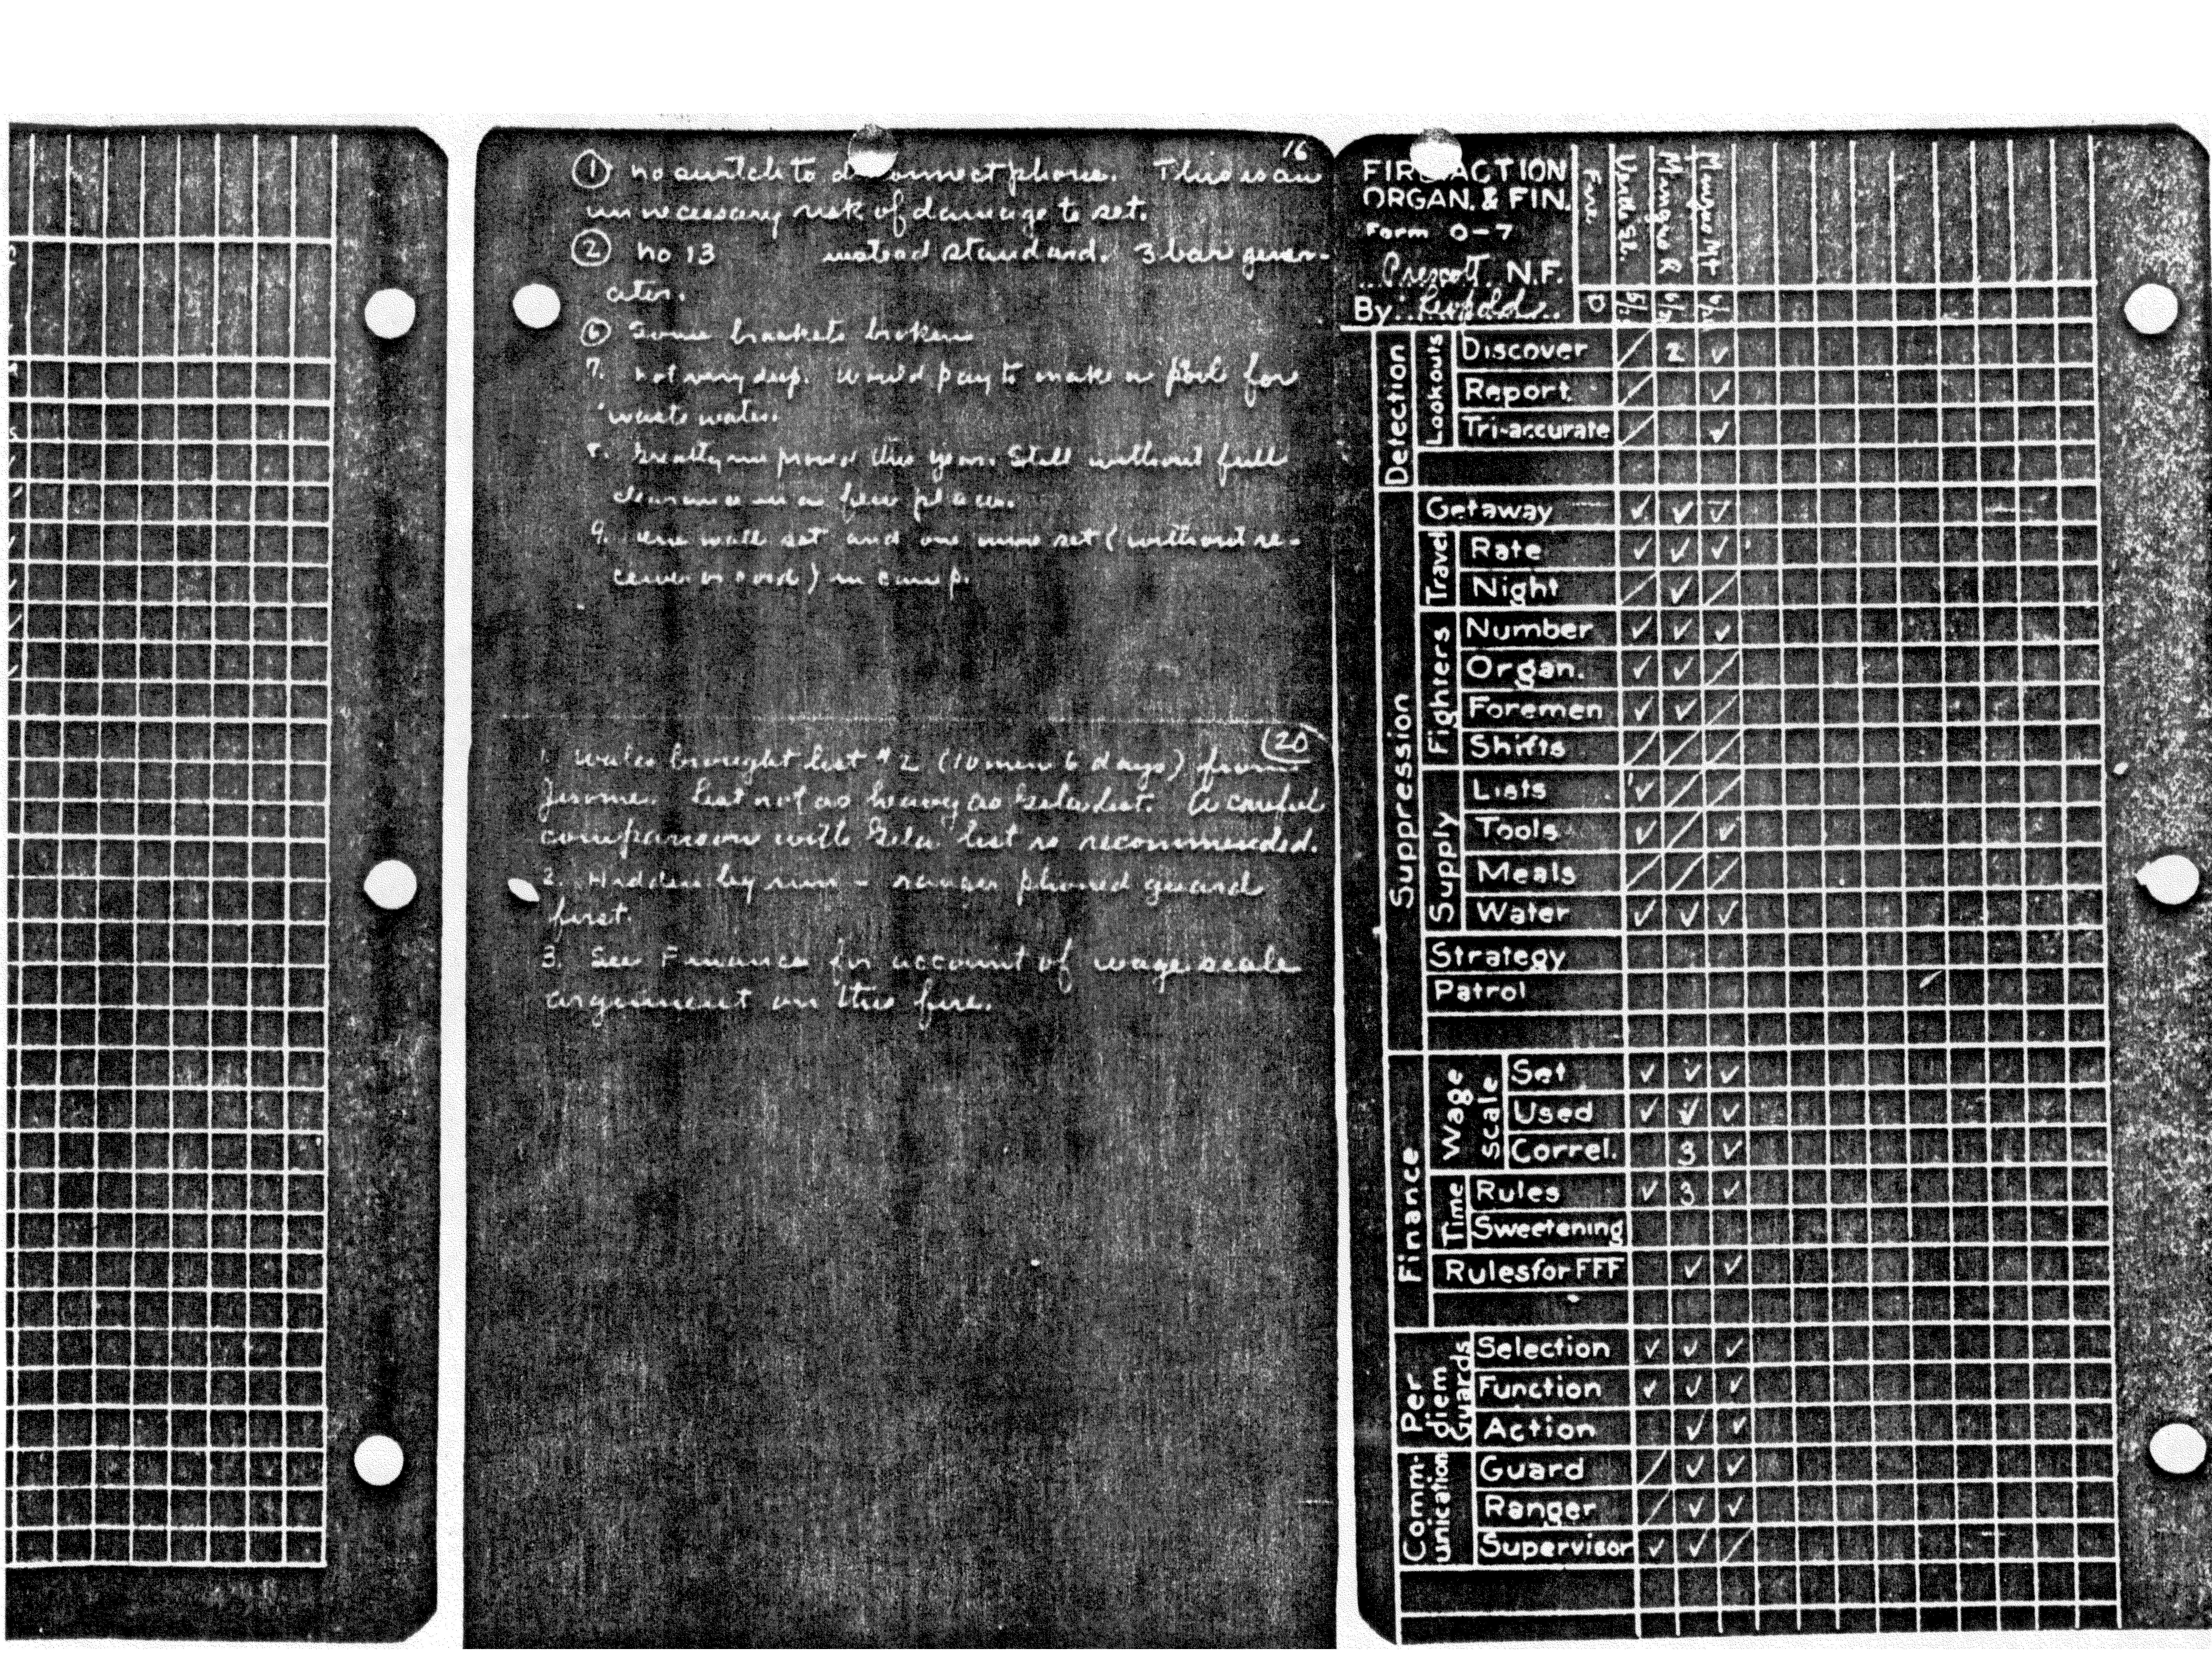 16
① No switch to disconnect phone. This is an
unnecessary risk of damage to set.
② No 13 instead standard. 3 bar gener-
ator.
⑥ Some brackets broken
7. Not very deep. Would pay to make a pool for
waste water.
8. Greatly improved this year. Still without full
clearance in a few places.
9. One wall set and one mine set (without re-
ceiver or cord) in camp.
(20
1. Wales brought list #2 (10 men 6 days) from
Jerome. List not as heavy as Gila list. A careful
comparison with Gila list is recommended.
2. Hidden by run - ranger phoned guard
first.
3. See Finance for account of wage scale
argument on this fire.
FIRE ACTION
ORGAN. & FIN.
Form O-7
Prescott N.F.
By Leopold
Fire
D
Mungro R
Mt
Detection
Lookouts
Discover / 2 ✓
Report / ✓
Tri-accurate / ✓
Suppression
Getaway ✓ ✓ ✓
Travel
Rate ✓ ✓ ✓
Night / ✓ /
Fighters
Number ✓ ✓ ✓
Organ. ✓ ✓ /
Foremen ✓ ✓ /
Shifts / / /
Supply
Lists ✓ / /
Tools ✓ / ✓
Meals / / /
Water ✓ ✓ ✓
Strategy
Patrol
Finance
Wage scale
Set ✓ ✓ ✓
Used ✓ ✓ ✓
Correl. 3 ✓
Time
Rules ✓ 3 ✓
Sweetening
Rules for FFF ✓ ✓
Per diem Guards
Selection ✓ ✓ ✓
Function ✓ ✓ ✓
Action ✓ ✓
Comm-unication
Guard / ✓ ✓
Ranger / ✓ ✓
Supervisor ✓ ✓ /